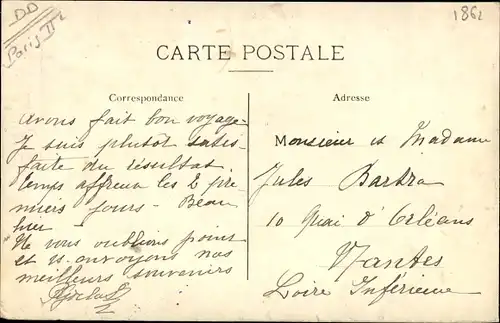 DD
Paris II
1862
CARTE POSTALE
Correspondance
Adresse
avons fait bon voyage
Je suis plutôt satis-
faite du résultat.
temps affreux les 2 pre
miers jours - Beau
hier
Ne vous oublions point
et vs. envoyons nos
meilleurs souvenirs
Monsieur et Madame
Jules Barbra
10 Quai d'Orléans
Nantes
Loire Inférieure